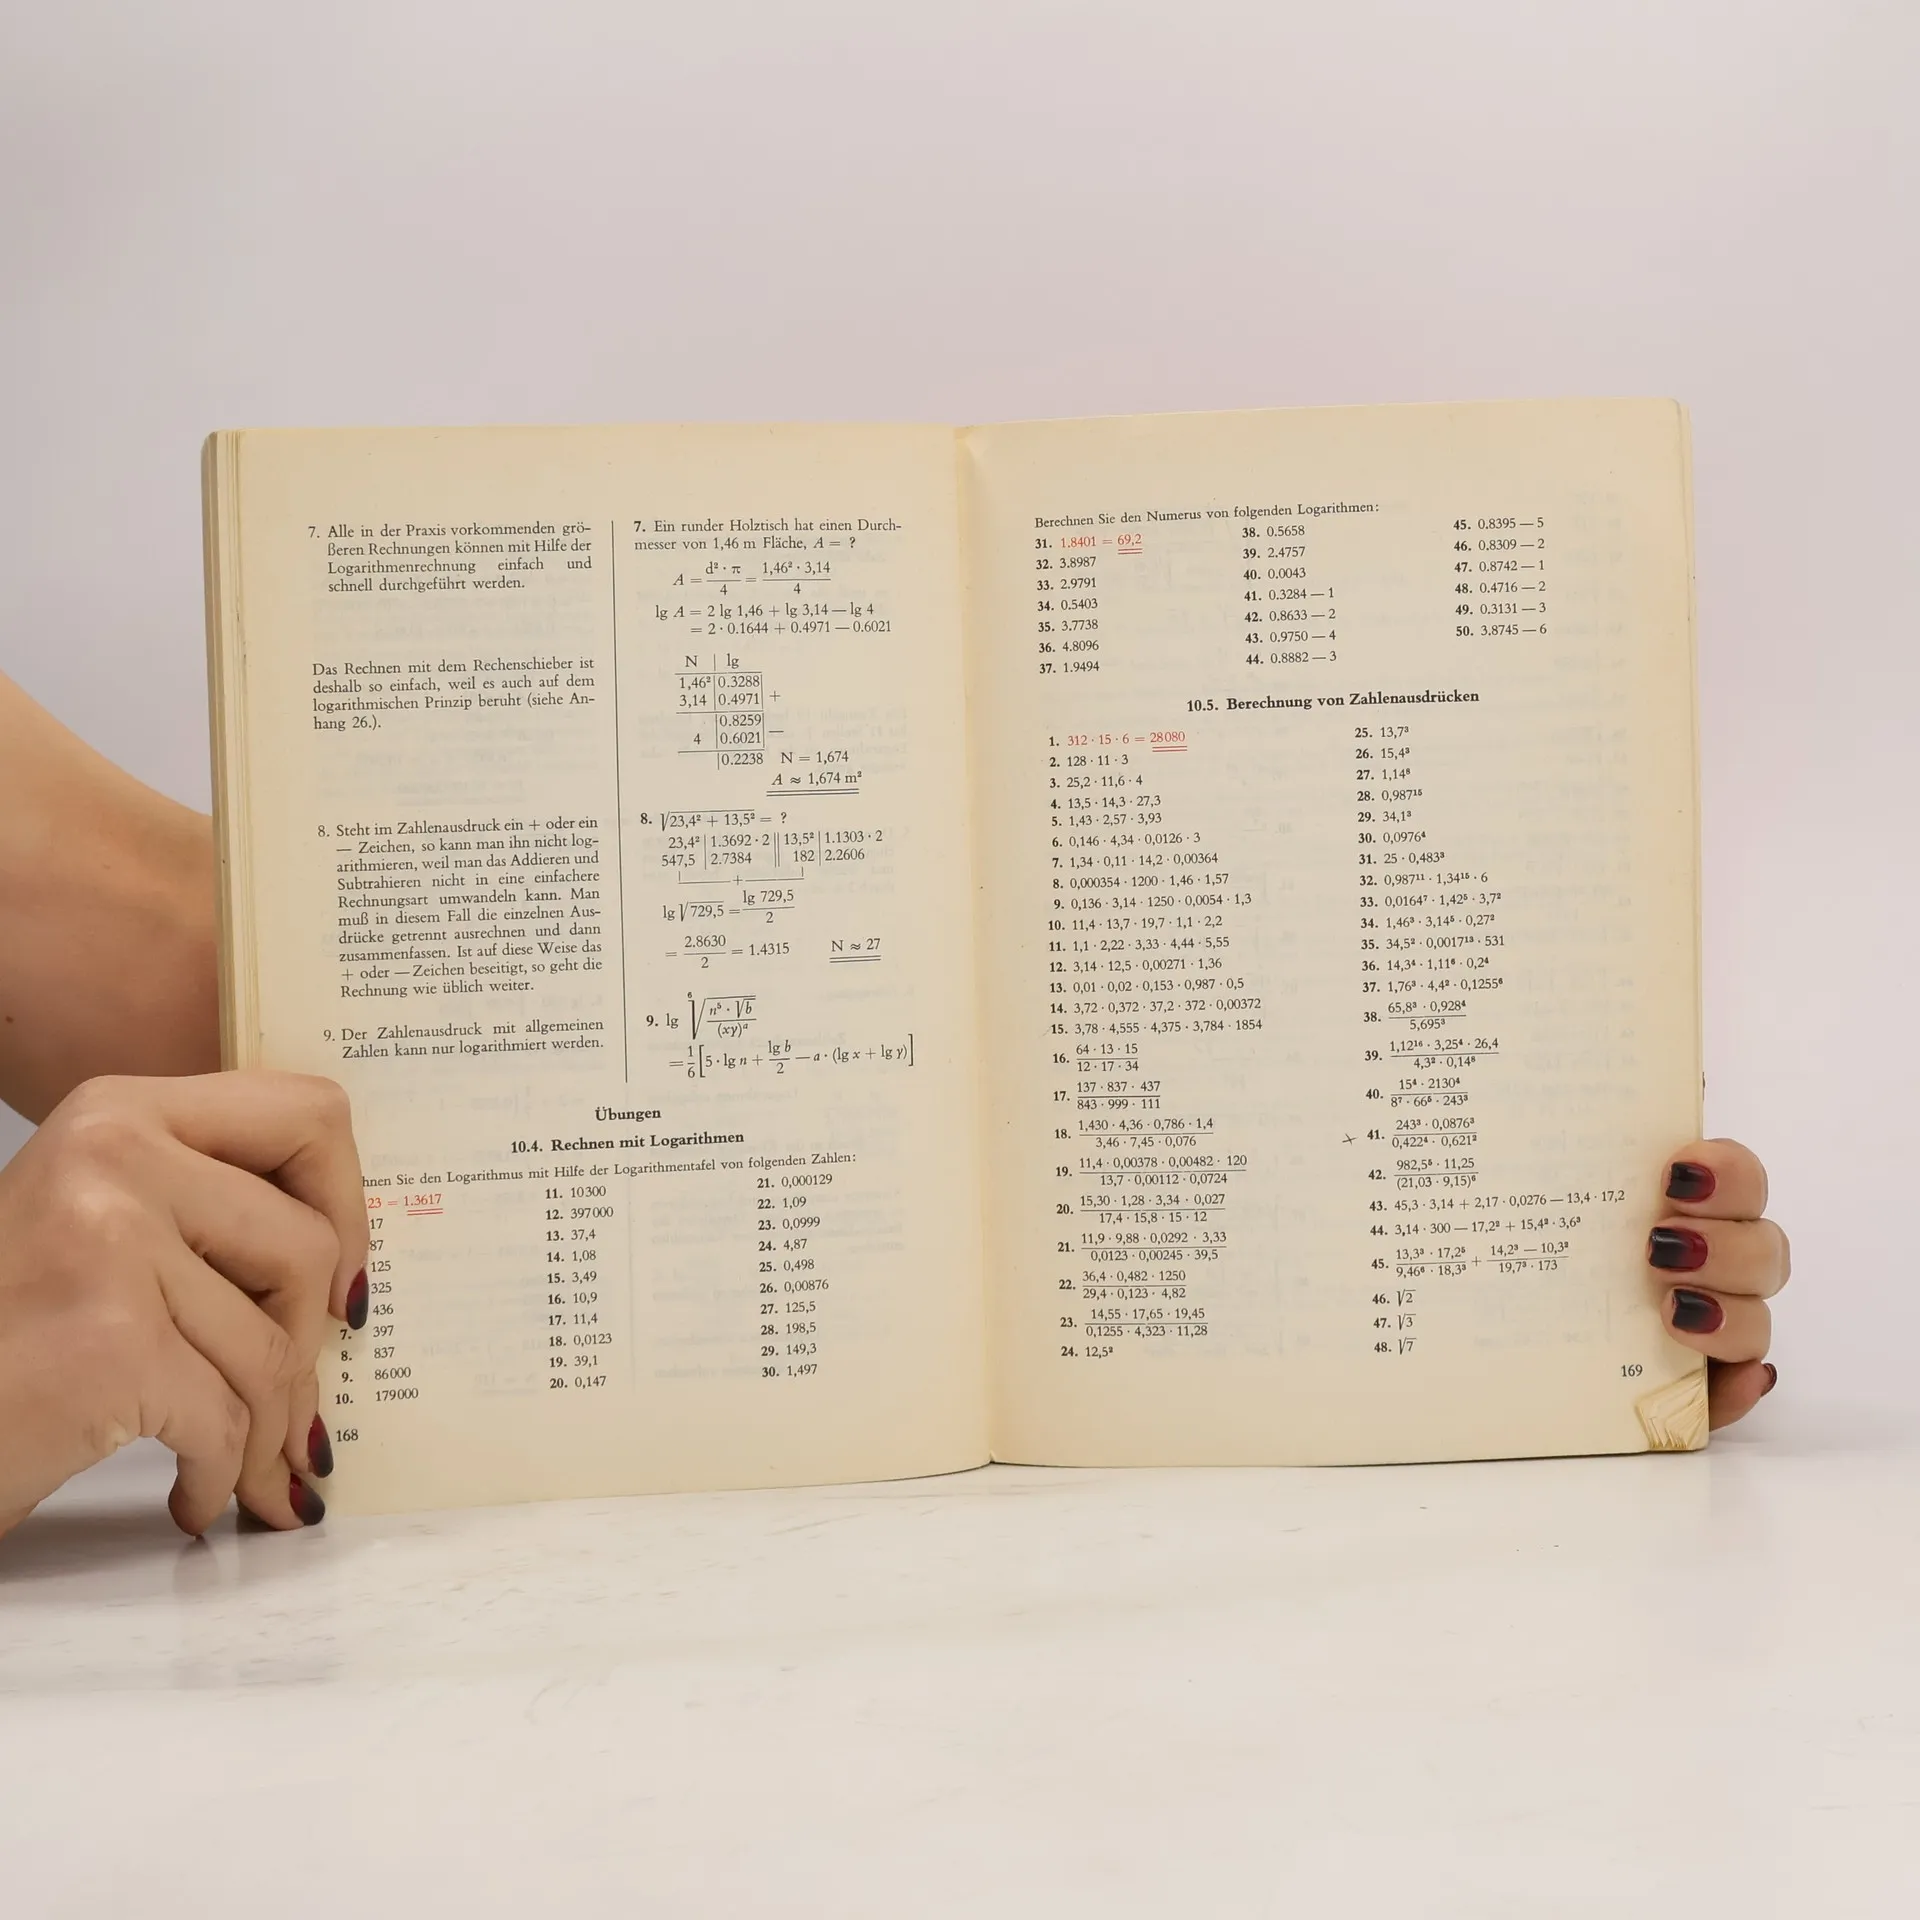 7. Alle in der Praxis vorkommenden grö-
ßeren Rechnungen können mit Hilfe der
Logarithmenrechnung einfach und
schnell durchgeführt werden.
Das Rechnen mit dem Rechenschieber ist
deshalb so einfach, weil es auch auf dem
logarithmischen Prinzip beruht (siehe An-
hang 26.).
8. Steht im Zahlenausdruck ein + oder ein
— Zeichen, so kann man ihn nicht log-
arithmieren, weil man das Addieren und
Subtrahieren nicht in eine einfachere
Rechnungsart umwandeln kann. Man
muß in diesem Fall die einzelnen Aus-
drücke getrennt ausrechnen und dann
zusammenfassen. Ist auf diese Weise das
+ oder — Zeichen beseitigt, so geht die
Rechnung wie üblich weiter.
9. Der Zahlenausdruck mit allgemeinen
Zahlen kann nur logarithmiert werden.
7. Ein runder Holztisch hat einen Durch-
messer von 1,46 m Fläche, A = ?
A = d² · π / 4 = 1,46² · 3,14 / 4
lg A = 2 lg 1,46 + lg 3,14 — lg 4
= 2 · 0.1644 + 0.4971 — 0.6021
N | lg
1,46² | 0.3288
3,14 | 0.4971 +
| 0.8259
4 | 0.6021 —
| 0.2238 N = 1,674
A ≈ 1,674 m²
8. √23,4² + 13,5² = ?
23,4² | 1.3692 · 2 || 13,5² | 1.1303 · 2
547,5 | 2.7384 182 | 2.2606
+
lg √729,5 = lg 729,5 / 2
= 2.8630 / 2 = 1.4315 N ≈ 27
9. lg ⁶√ n⁵ · √b / (xy)ᵃ
= 1/6 [5 · lg n + lg b / 2 — a · (lg x + lg y)]
Übungen
10.4. Rechnen mit Logarithmen
hnen Sie den Logarithmus mit Hilfe der Logarithmentafel von folgenden Zahlen:
23 = 1.3617
17
87
125
325
436
7. 397
8. 837
9. 86000
10. 179000
11. 10300
12. 397000
13. 37,4
14. 1,08
15. 3,49
16. 10,9
17. 11,4
18. 0,0123
19. 39,1
20. 0,147
21. 0,000129
22. 1,09
23. 0,0999
24. 4,87
25. 0,498
26. 0,00876
27. 125,5
28. 198,5
29. 149,3
30. 1,497
168
Berechnen Sie den Numerus von folgenden Logarithmen:
31. 1.8401 = 69,2
32. 3.8987
33. 2.9791
34. 0.5403
35. 3.7738
36. 4.8096
37. 1.9494
38. 0.5658
39. 2.4757
40. 0.0043
41. 0.3284 — 1
42. 0.8633 — 2
43. 0.9750 — 4
44. 0.8882 — 3
45. 0.8395 — 5
46. 0.8309 — 2
47. 0.8742 — 1
48. 0.4716 — 2
49. 0.3131 — 3
50. 3.8745 — 6
10.5. Berechnung von Zahlenausdrücken
1. 312 · 15 · 6 = 28080
2. 128 · 11 · 3
3. 25,2 · 11,6 · 4
4. 13,5 · 14,3 · 27,3
5. 1,43 · 2,57 · 3,93
6. 0,146 · 4,34 · 0,0126 · 3
7. 1,34 · 0,11 · 14,2 · 0,00364
8. 0,000354 · 1200 · 1,46 · 1,57
9. 0,136 · 3,14 · 1250 · 0,0054 · 1,3
10. 11,4 · 13,7 · 19,7 · 1,1 · 2,2
11. 1,1 · 2,22 · 3,33 · 4,44 · 5,55
12. 3,14 · 12,5 · 0,00271 · 1,36
13. 0,01 · 0,02 · 0,153 · 0,987 · 0,5
14. 3,72 · 0,372 · 37,2 · 372 · 0,00372
15. 3,78 · 4,555 · 4,375 · 3,784 · 1854
16. 64 · 13 · 15 / 12 · 17 · 34
17. 137 · 837 · 437 / 843 · 999 · 111
18. 1,430 · 4,36 · 0,786 · 1,4 / 3,46 · 7,45 · 0,076
19. 11,4 · 0,00378 · 0,00482 · 120 / 13,7 · 0,00112 · 0,0724
20. 15,30 · 1,28 · 3,34 · 0,027 / 17,4 · 15,8 · 15 · 12
21. 11,9 · 9,88 · 0,0292 · 3,33 / 0,0123 · 0,00245 · 39,5
22. 36,4 · 0,482 · 1250 / 29,4 · 0,123 · 4,82
23. 14,55 · 17,65 · 19,45 / 0,1255 · 4,323 · 11,28
24. 12,5²
25. 13,7³
26. 15,4³
27. 1,14⁸
28. 0,987¹⁵
29. 34,1³
30. 0,0976⁴
31. 25 · 0,483³
32. 0,987¹¹ · 1,34¹⁵ · 6
33. 0,0164⁷ · 1,42⁵ · 3,7²
34. 1,46³ · 3,14⁵ · 0,27²
35. 34,5² · 0,0017¹³ · 531
36. 14,3⁴ · 1,11⁶ · 0,2⁴
37. 1,76³ · 4,4² · 0,1255⁶
38. 65,8³ · 0,928⁴ / 5,695³
39. 1,12¹⁶ · 3,25⁴ · 26,4 / 4,3² · 0,14⁸
40. 15⁴ · 2130⁴ / 8⁷ · 66⁵ · 243³
41. 243³ · 0,0876³ / 0,422⁴ · 0,621²
42. 982,5⁵ · 11,25 / (21,03 · 9,15)⁶
43. 45,3 · 3,14 + 2,17 · 0,0276 — 13,4 · 17,2
44. 3,14 · 300 — 17,2² + 15,4² · 3,6³
45. 13,3³ · 17,2⁵ / 9,46⁶ · 18,3³ + 14,2³ — 10,3² / 19,7³ · 173
46. √2
47. √3
48. √7
169